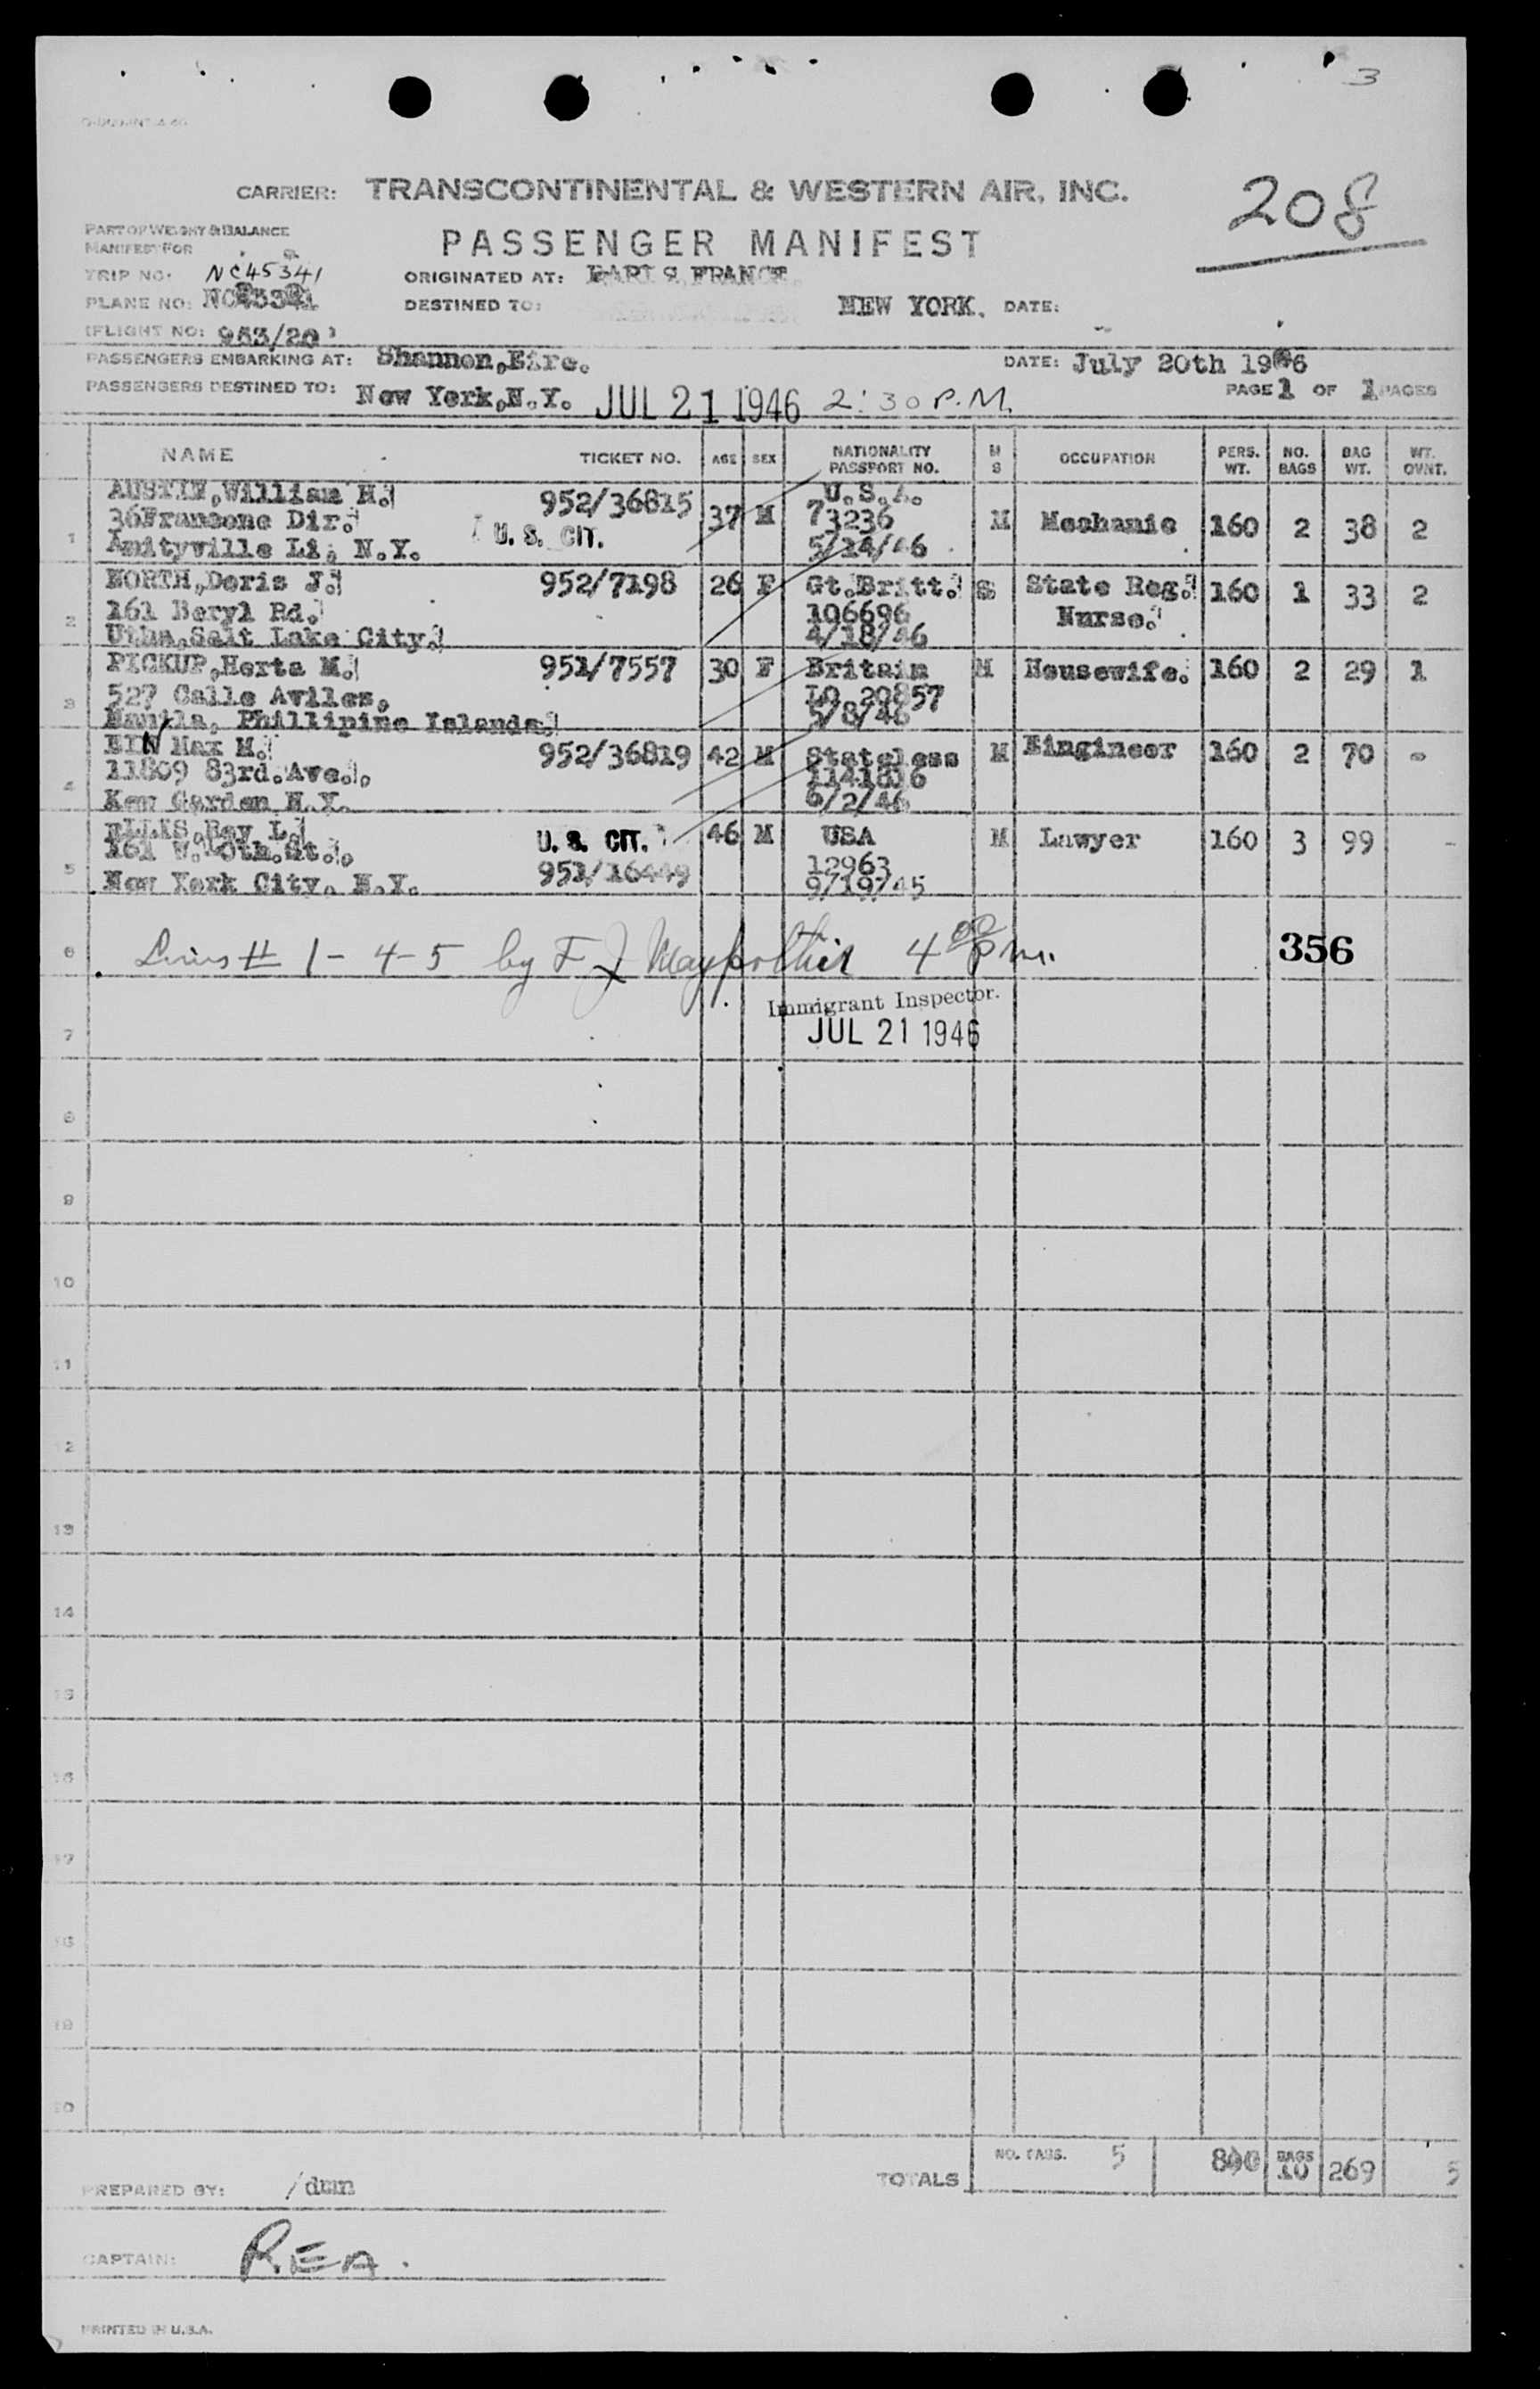 3
CARRIER: TRANSCONTINENTAL & WESTERN AIR, INC.
208
PART OF WEIGHT & BALANCE
MANIFEST FOR
PASSENGER MANIFEST
TRIP NO: NC45341
ORIGINATED AT: PARIS, FRANCE.
PLANE NO:
DESTINED TO: NEW YORK. DATE:
(FLIGHT NO: 953/20
PASSENGERS EMBARKING AT: Shannon,Eire. DATE: July 20th 1946
PASSENGERS DESTINED TO: New York,N.Y. JUL 21 1946 2:30 P.M. PAGE 1 OF 1 PAGES
NAME TICKET NO. AGE SEX NATIONALITY PASSPORT NO. M S OCCUPATION PERS. WT. NO. BAGS BAG WT. WT. OVNT.
AUSTIN,William H. 952/36815 U.S.A.
1 36Fransone Dir. U. S. CIT. 37 M 73236 M Mechanic 160 2 38 2
Amityville Li, N.Y. 5/14/46
NORTH,Doris J. 952/7198 26 F Gt.Britt. S State Reg. 160 1 33 2
2 161 Beryl Rd. 106696 Nurse.
Utha,Salt Lake City. 4/18/46
PICKUP,Herta M. 951/7557 30 F Britain M Housewife. 160 2 29 1
3 527 Calle Aviles, LO 20857
Manila, Phillipine Islands. 5/8/46
Max M. 952/36819 42 M Stateless M Eingineer 160 2 70 -
4 11809 83rd.Ave., 1141816
Kew Garden N.Y. 6/2/46
ELLIS,Ray L. U. S. CIT. 46 M USA M Lawyer 160 3 99 -
5 161 W. St., 951/16449 12963
New York City, N.Y. 9/19/45
6 Lines # 1-4-5 by F J 4 00 P m. 356
Immigrant Inspector.
7 JUL 21 1946
8
9
10
11
12
13
14
15
16
17
18
19
20
TOTALS NO. PASS. 5 800 BAGS 10 269 5
PREPARED BY: /dum
CAPTAIN: REA.
PRINTED IN U.S.A.